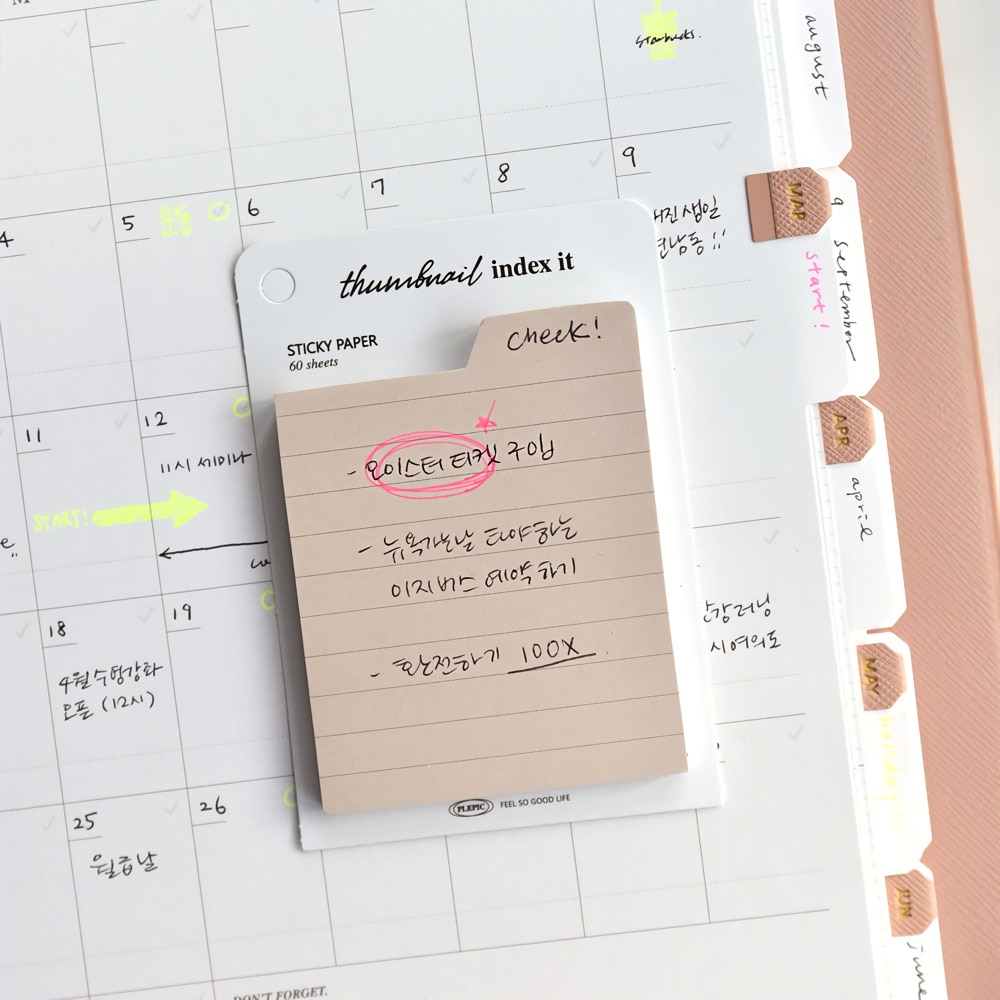 Starbucks.
august
4
5
운동
6
7
8
9
생일
연남동 !!
MAR
9
september
start!
thumbnail index it
STICKY PAPER
60 sheets
check!
- 오이스터 티켓 구입
- 뉴욕가는날 타야하는
이지버스 예약하기
- 환전하기 100X
PLEPIC
FEEL SO GOOD LIFE
11
12
11시 세미나
START!
APR
april
18
19
4월 수영강좌
오픈 (12시)
러닝
시 여의도
MAY
25
26
월급날
JUN
june
DON'T FORGET.